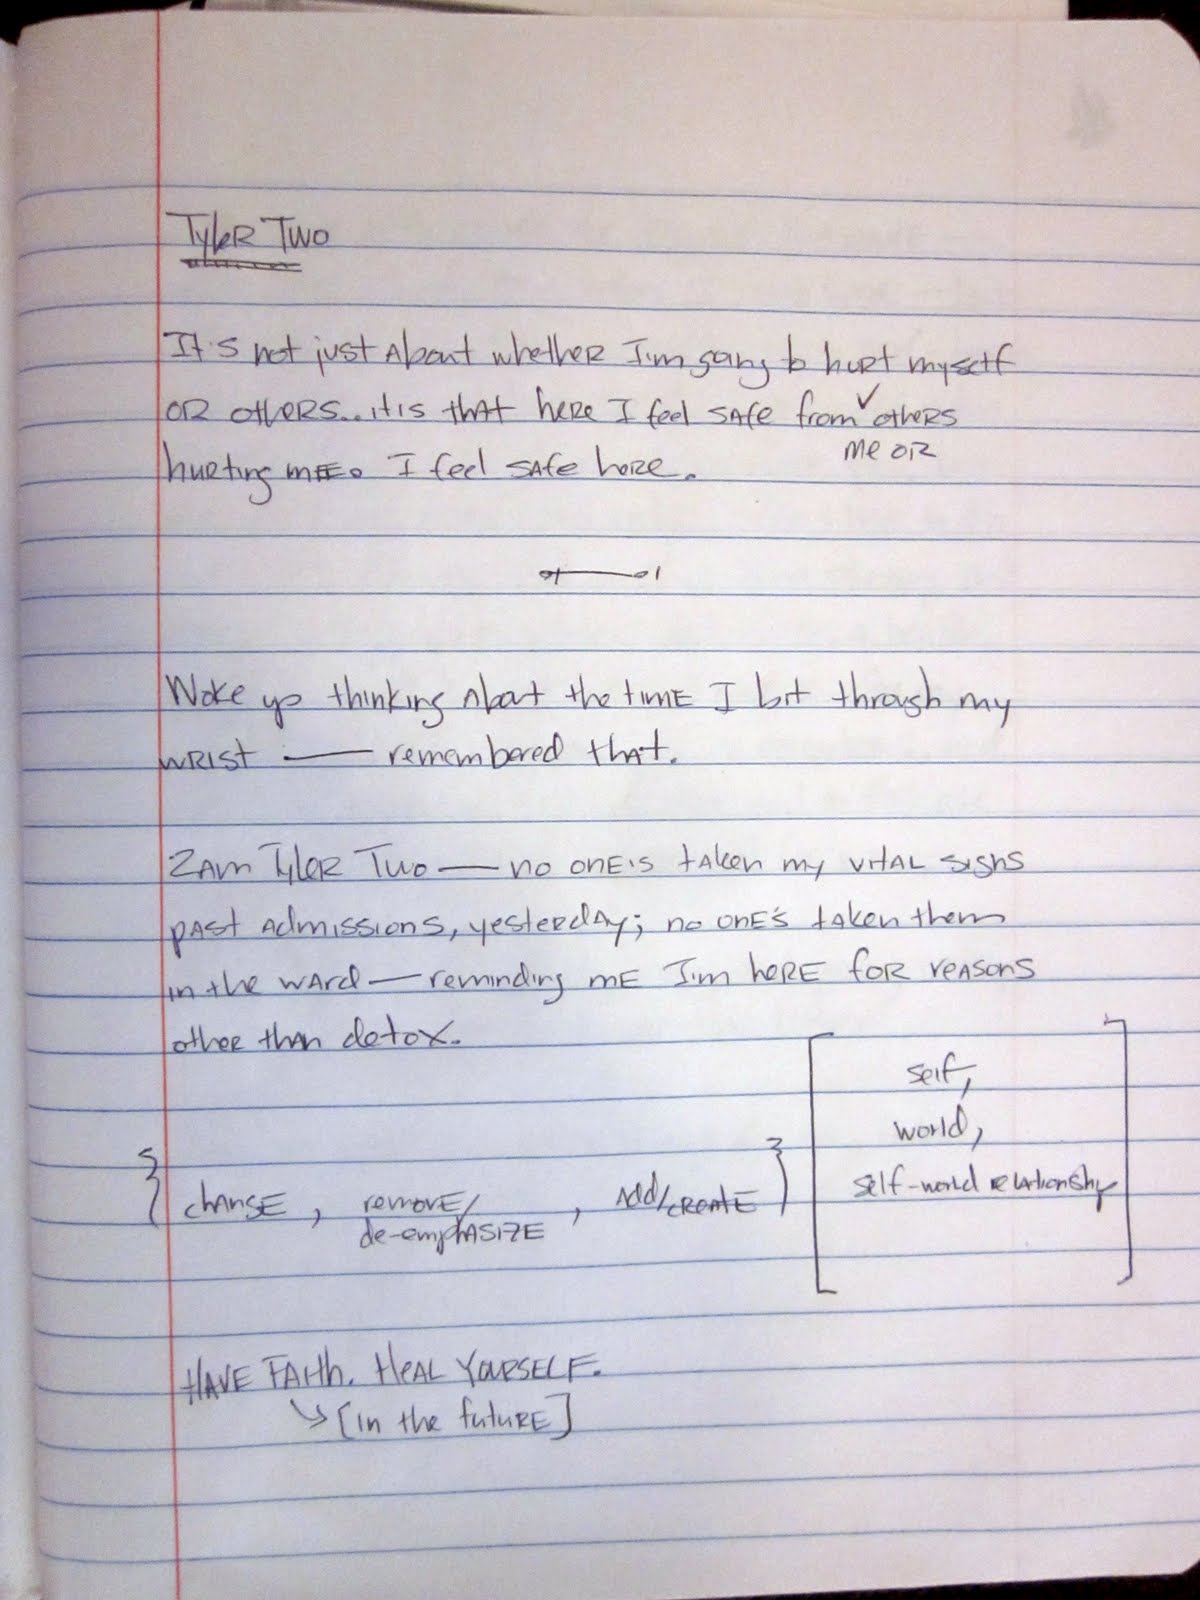 Tyler Two
It's not just about whether I'm going to hurt myself
or others... it is that here I feel safe from ✓ others
me or
hurting me. I feel safe here.
Woke up thinking about the time I bit through my
wrist — remembered that.
2am Tyler Two — no one's taken my vital signs
past admissions, yesterday; no one's taken them
in the ward — reminding me I'm here for reasons
other than detox.
{ change, remove/ de-emphasize, add/create } [ self,
world,
self-world relationship ]
Have Faith. Heal Yourself.
↘ [in the future]